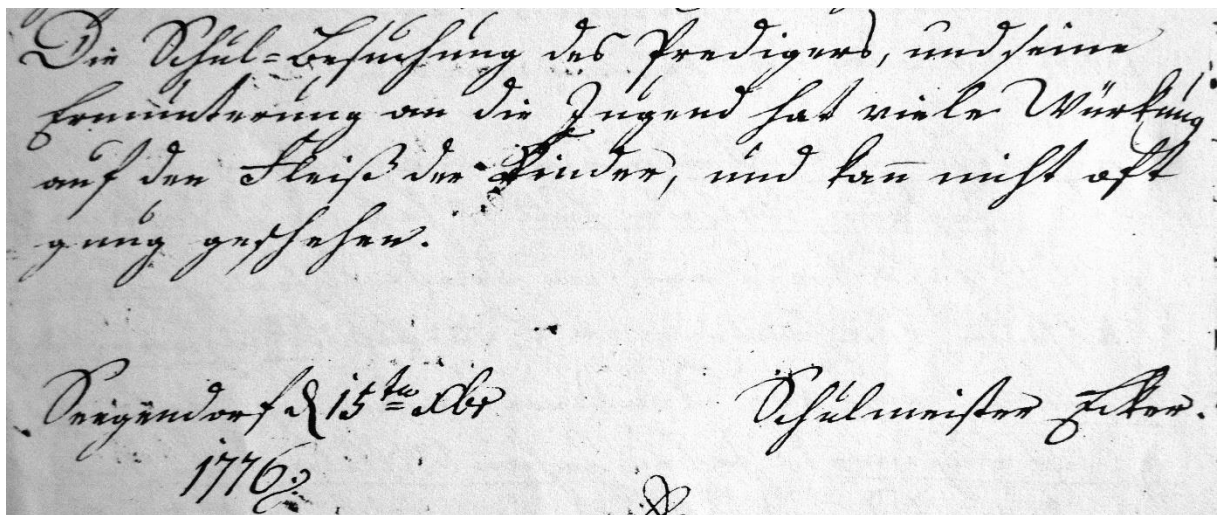 Die Schul-Besuchung des Predigers, und seine
Ermunterung an die Jugend hat viele Würkung
auf den Fleiß der Kinder, und kan̄ nicht oft
gnug geschehen.
d 15ten Xbr
Schulmeister Ecker.
1776